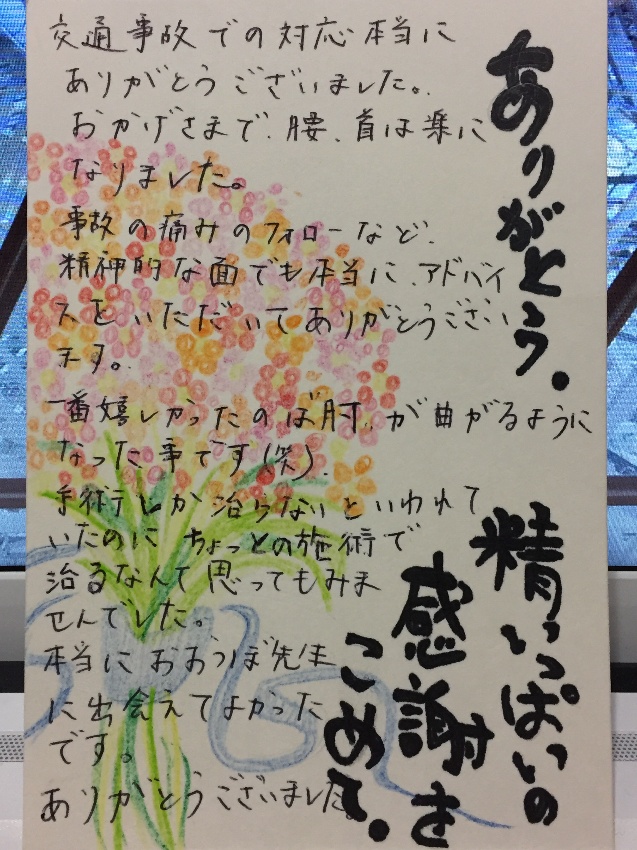 ありがとう。
精いっぱいの
感謝を
こめて。
交通事故での対応本当に
ありがとうございました。
おかげさまで、腰、首は楽に
なりました。
事故の痛みのフォローなど、
精神的な面でも本当に、アドバイ
スをいただいてありがとうござい
ます。
一番嬉しかったのは肘、が曲がるように
なった事です(笑)。
手術でしか治らないといわれて
いたのにちょっとの施術で
治るなんて思ってもみま
せんでした。
本当におおつぼ先生
に出会えてよかった
です。
ありがとうございました。